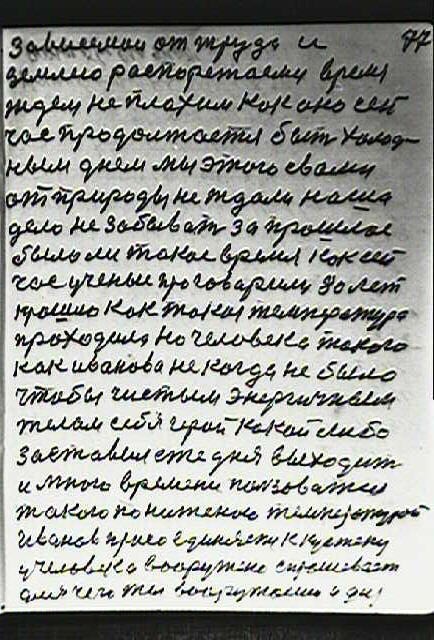 зависемои от труда и 77
землю распоряжаеми время
ждем не плохим как оно сей
час продолжается быт холод-
ным днем мы этого свами
от природы не ждали наша
дело не забыват за прошлое
было ли такое время как сей
час ученые проговорили 30 лет
прошло как такая температура
проходила но человека такого
как иванова не когда не было
чтобы чистым энергичным
телом себя герой какой либо
заставил еже дня выходит
и много времени ползоватся
такого пониженой температурой
Иванов присоединяти к
человека вооружено спрашевает
для чего ты вооружаеш